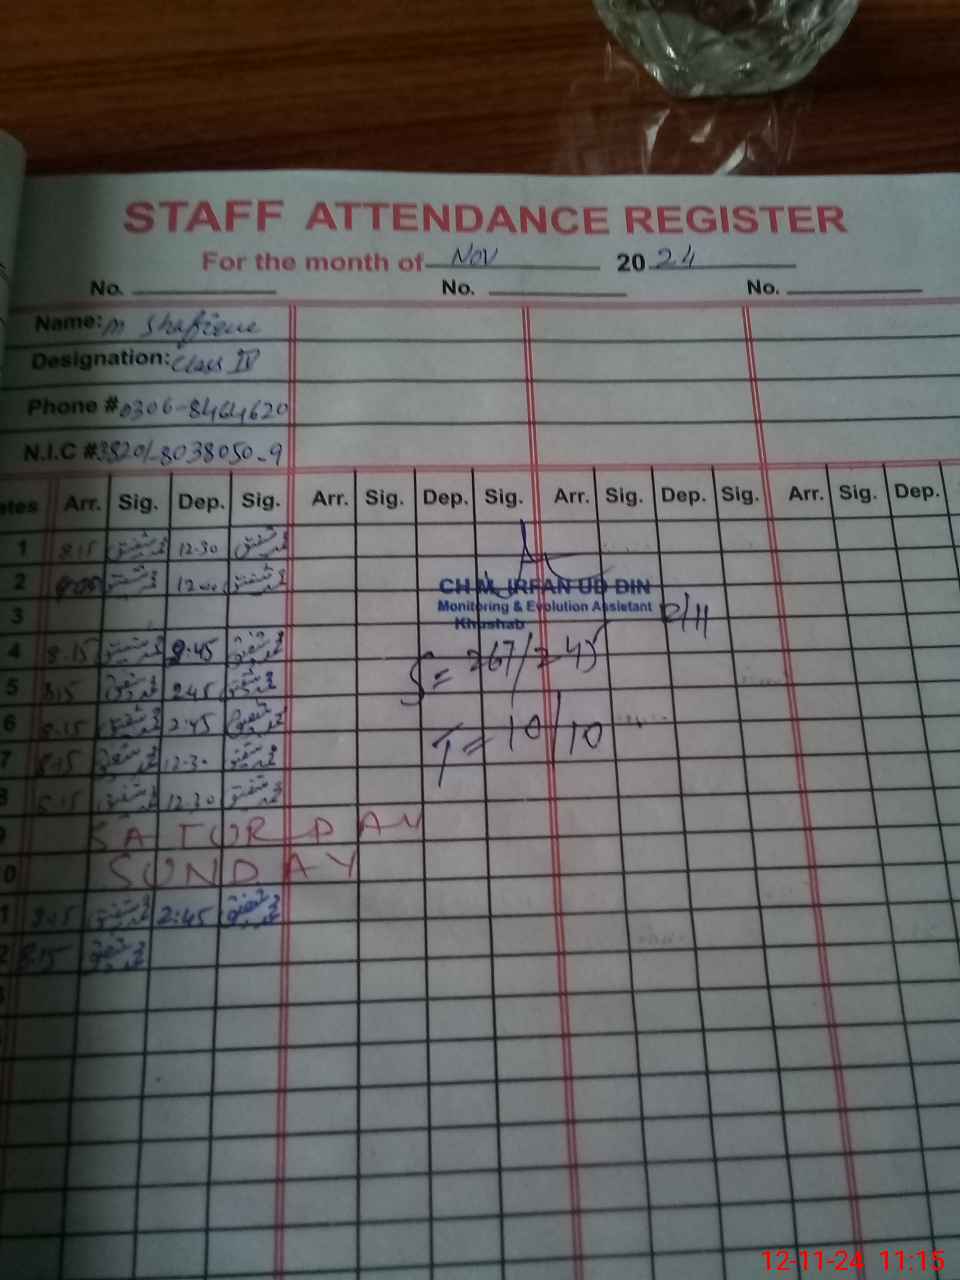 STAFF ATTENDANCE REGISTER
For the month of Nov 2024
No. No. No.
Name: M Shafique
Designation: Class IV
Phone # 0306-8464620
N.I.C # 38201-8038050-9
Arr. Sig. Dep. Sig. Arr. Sig. Dep. Sig. Arr. Sig. Dep. Sig. Arr. Sig. Dep.
1 8:15 محمد شفیق 12-30 محمد شفیق
2 محمد شفیق 12 محمد شفیق
CH M. IRFAN UD DIN
Monitoring & Evolution Assistant
Khushab
3
4 8.15 محمد شفیق 2:45 محمد شفیق
S = 267/245
5 8:15 محمد شفیق 2:45 محمد شفیق
6 8.15 محمد شفیق 2:45 محمد شفیق
T = 10/10
7 8:15 محمد شفیق 12-30 محمد شفیق
8:15 محمد شفیق 12.30 محمد شفیق
SATURDAY
0 SUNDAY
1 8:15 محمد شفیق 2:45 محمد شفیق
2 8:15 محمد شفیق
12-11-24 11:15